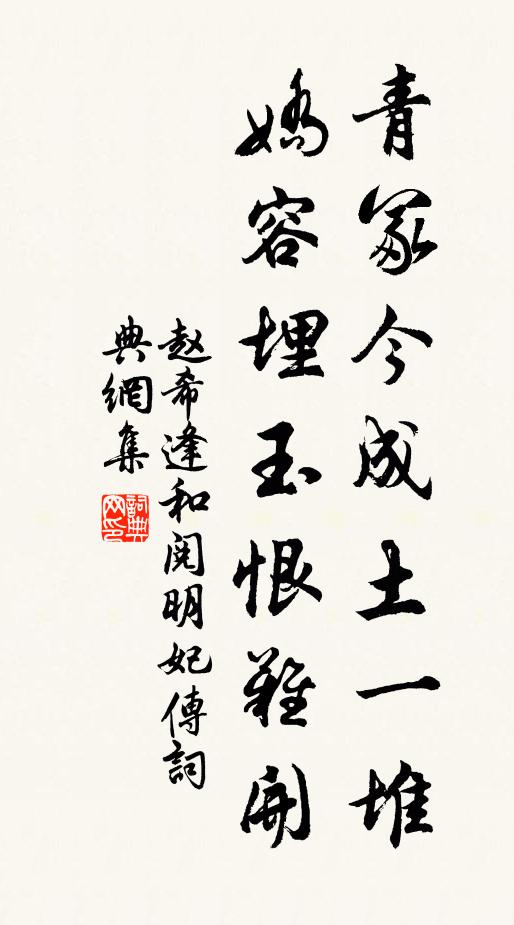 青冢今成土一堆
嬌容埋玉恨難開
赵希逢和阅明妃傳詞
典網集
詞典网印